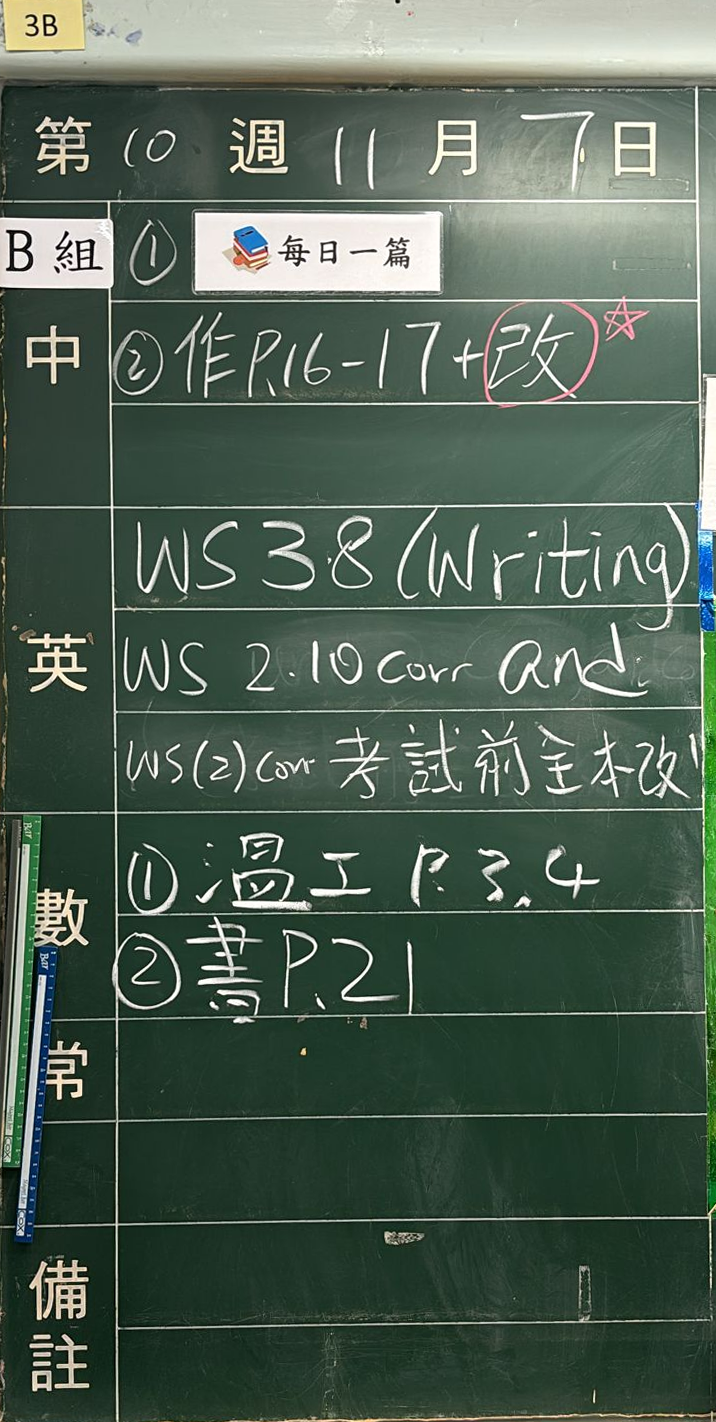 3B
第 10 週 11 月 7 日
B 組 ① 每日一篇
中 ② 作 P.16-17 + 改 ☆
英
WS 3.8 (Writing)
WS 2.10 corr and
WS(2) corr 考試前全本改
數
① 溫工 P.3,4
② 書 P.21
常
備註